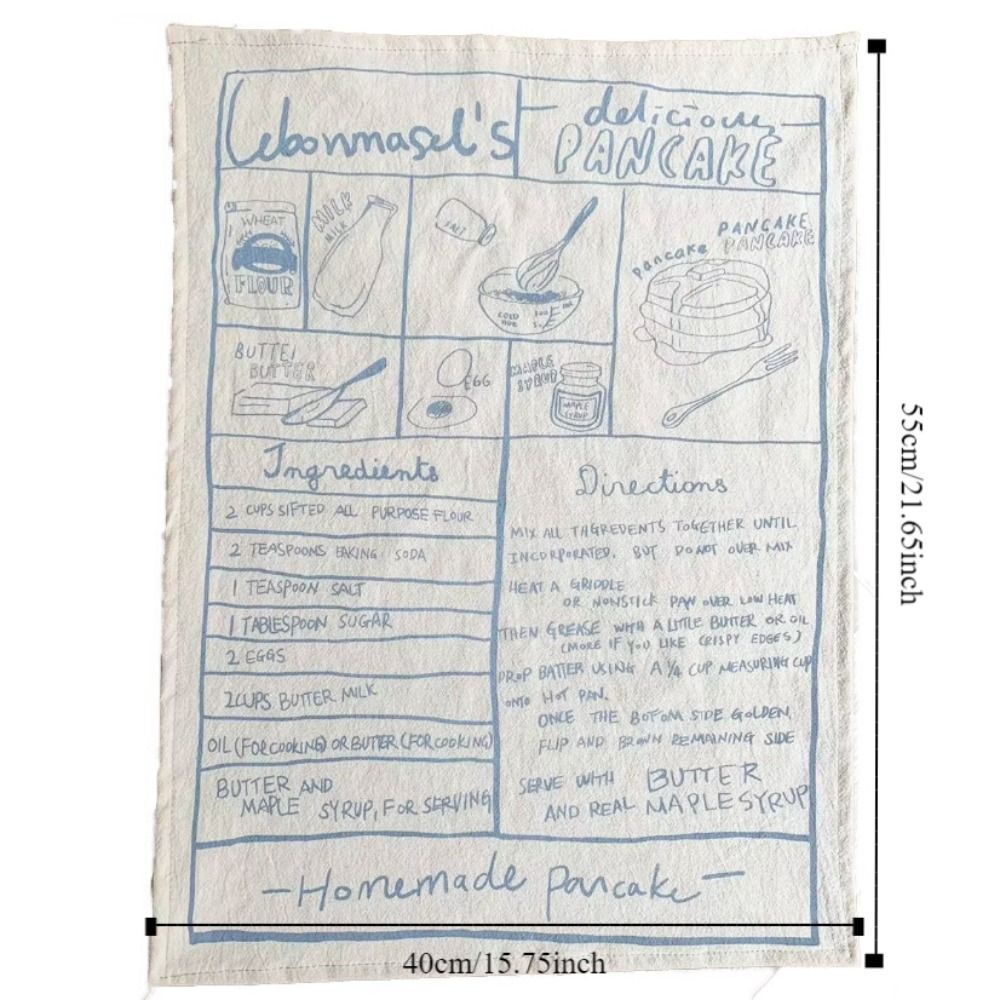 Lebonmasel's
delicious
PANCAKE
WHEAT
FLOUR
MILK
MILK
SALT
COLD
PANCAKE
PANCAKE
pancake
BUTTER
BUTTER
EGG
MAPLE
SYRUP
MAPLE
SYRUP
Ingredients
2 CUPS SIFTED ALL PURPOSE FLOUR
2 TEASPOONS BAKING SODA
1 TEASPOON SALT
1 TABLESPOON SUGAR
2 EGGS
2CUPS BUTTER MILK
OIL (FOR COOKING) OR BUTTER (FOR COOKING)
BUTTER AND
MAPLE SYRUP, FOR SERVING
Directions
MIX ALL THGREDENTS TOGETHER UNTIL
INCORPORATED, BUT DO NOT OVER MIX
HEAT A GRIDDLE
OR NONSTICK PAN OVER LOW HEAT
THEN GREASE WITH A LITTLE BUTTER OR OIL
(MORE IF YOU LIKE CRISPY EDGES)
DROP BATTER USING A 1/4 CUP MEASURING CUP
ONTO HOT PAN.
ONCE THE BOTOM SIDE GOLDEN,
FLIP AND BROWN REMAINING SIDE
SERVE WITH BUTTER
AND REAL MAPLE SYRUP
-Homemade pancake-
55cm/21.65inch
40cm/15.75inch